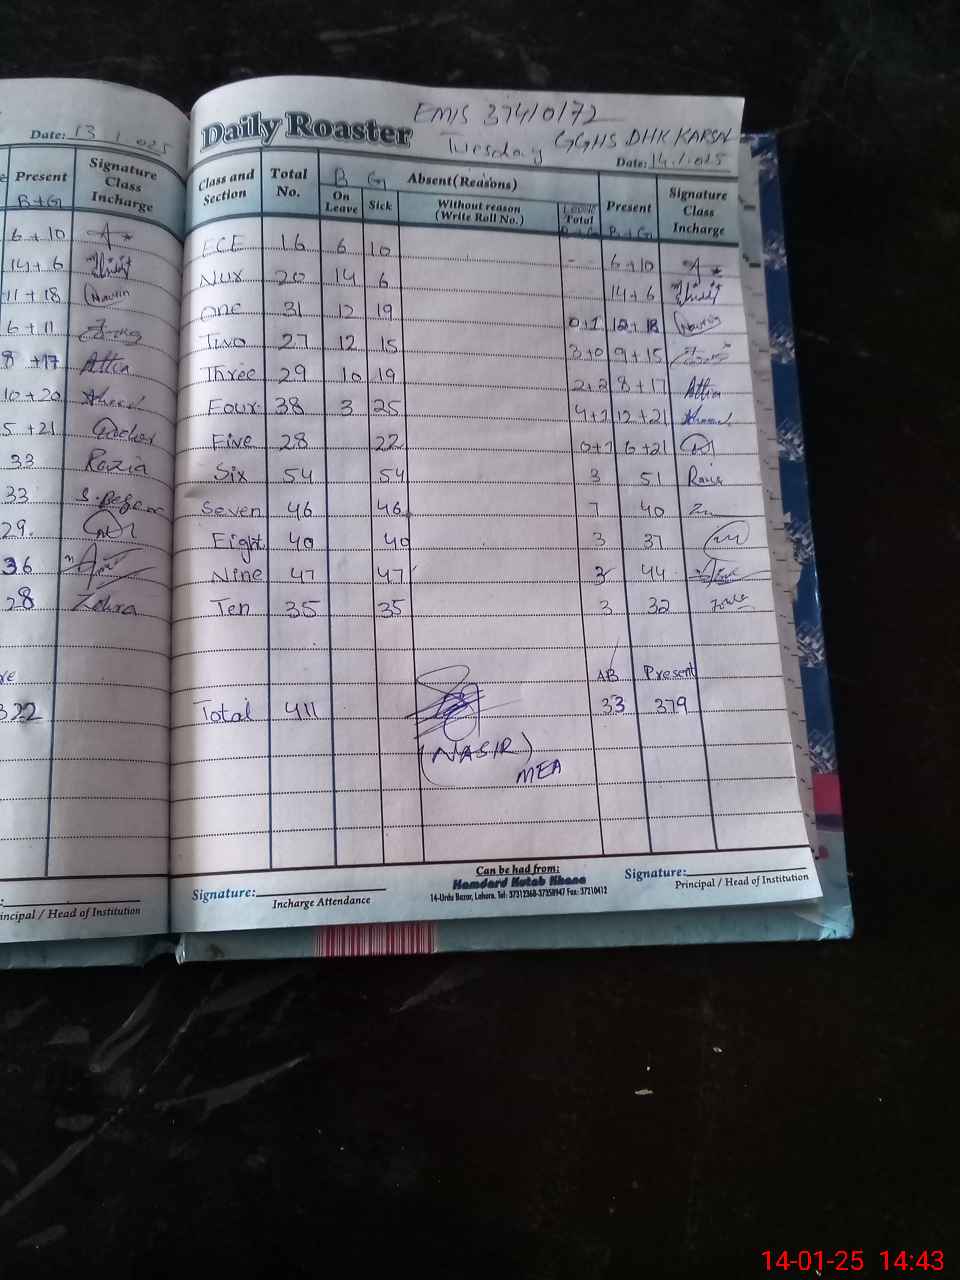 Date: 13.1.025
Present
Signature Class Incharge
B+G
6 + 10
14 + 6
11 + 18 Nourin
6 + 11
8 +17 Attia
10 + 20
5 +21
33 Razia
33
29.
36
28 Zohra
322
Principal / Head of Institution
EMIS 37410172
Daily Roaster
Tuesday GGHS DHK KARSAL
Date: 14.1.025
Class and Section Total No. B G Absent (Reasons) Present Signature Class Incharge
On Leave Sick Without reason (Write Roll No.) Total
B+G B+G
ECE 16 6 10 -- 6+10
Nur 20 14 6 14+6
One 31 12 19 0+1 12+18 Nourin
Two 27 12 15 3+0 9+15
Three 29 10 19 2+2 8+17 Attia
Four 38 3 25 4+1 12+21
Five 28 22 0+1 6+21
Six 54 54 3 51
Seven 46 46 7 40
Eight 40 40 3 37
Nine 47 47 3 44
Ten 35 35 3 32
AB Present
Total 411 33 379
(NASIR)
MEA
Signature:
Incharge Attendance
Can be had from:
Hamdard Kutab Khana
14-Urdu Bazar, Lahore. Tel: 37312360-37358947 Fax: 37210412
Signature:
Principal / Head of Institution
14-01-25 14:43